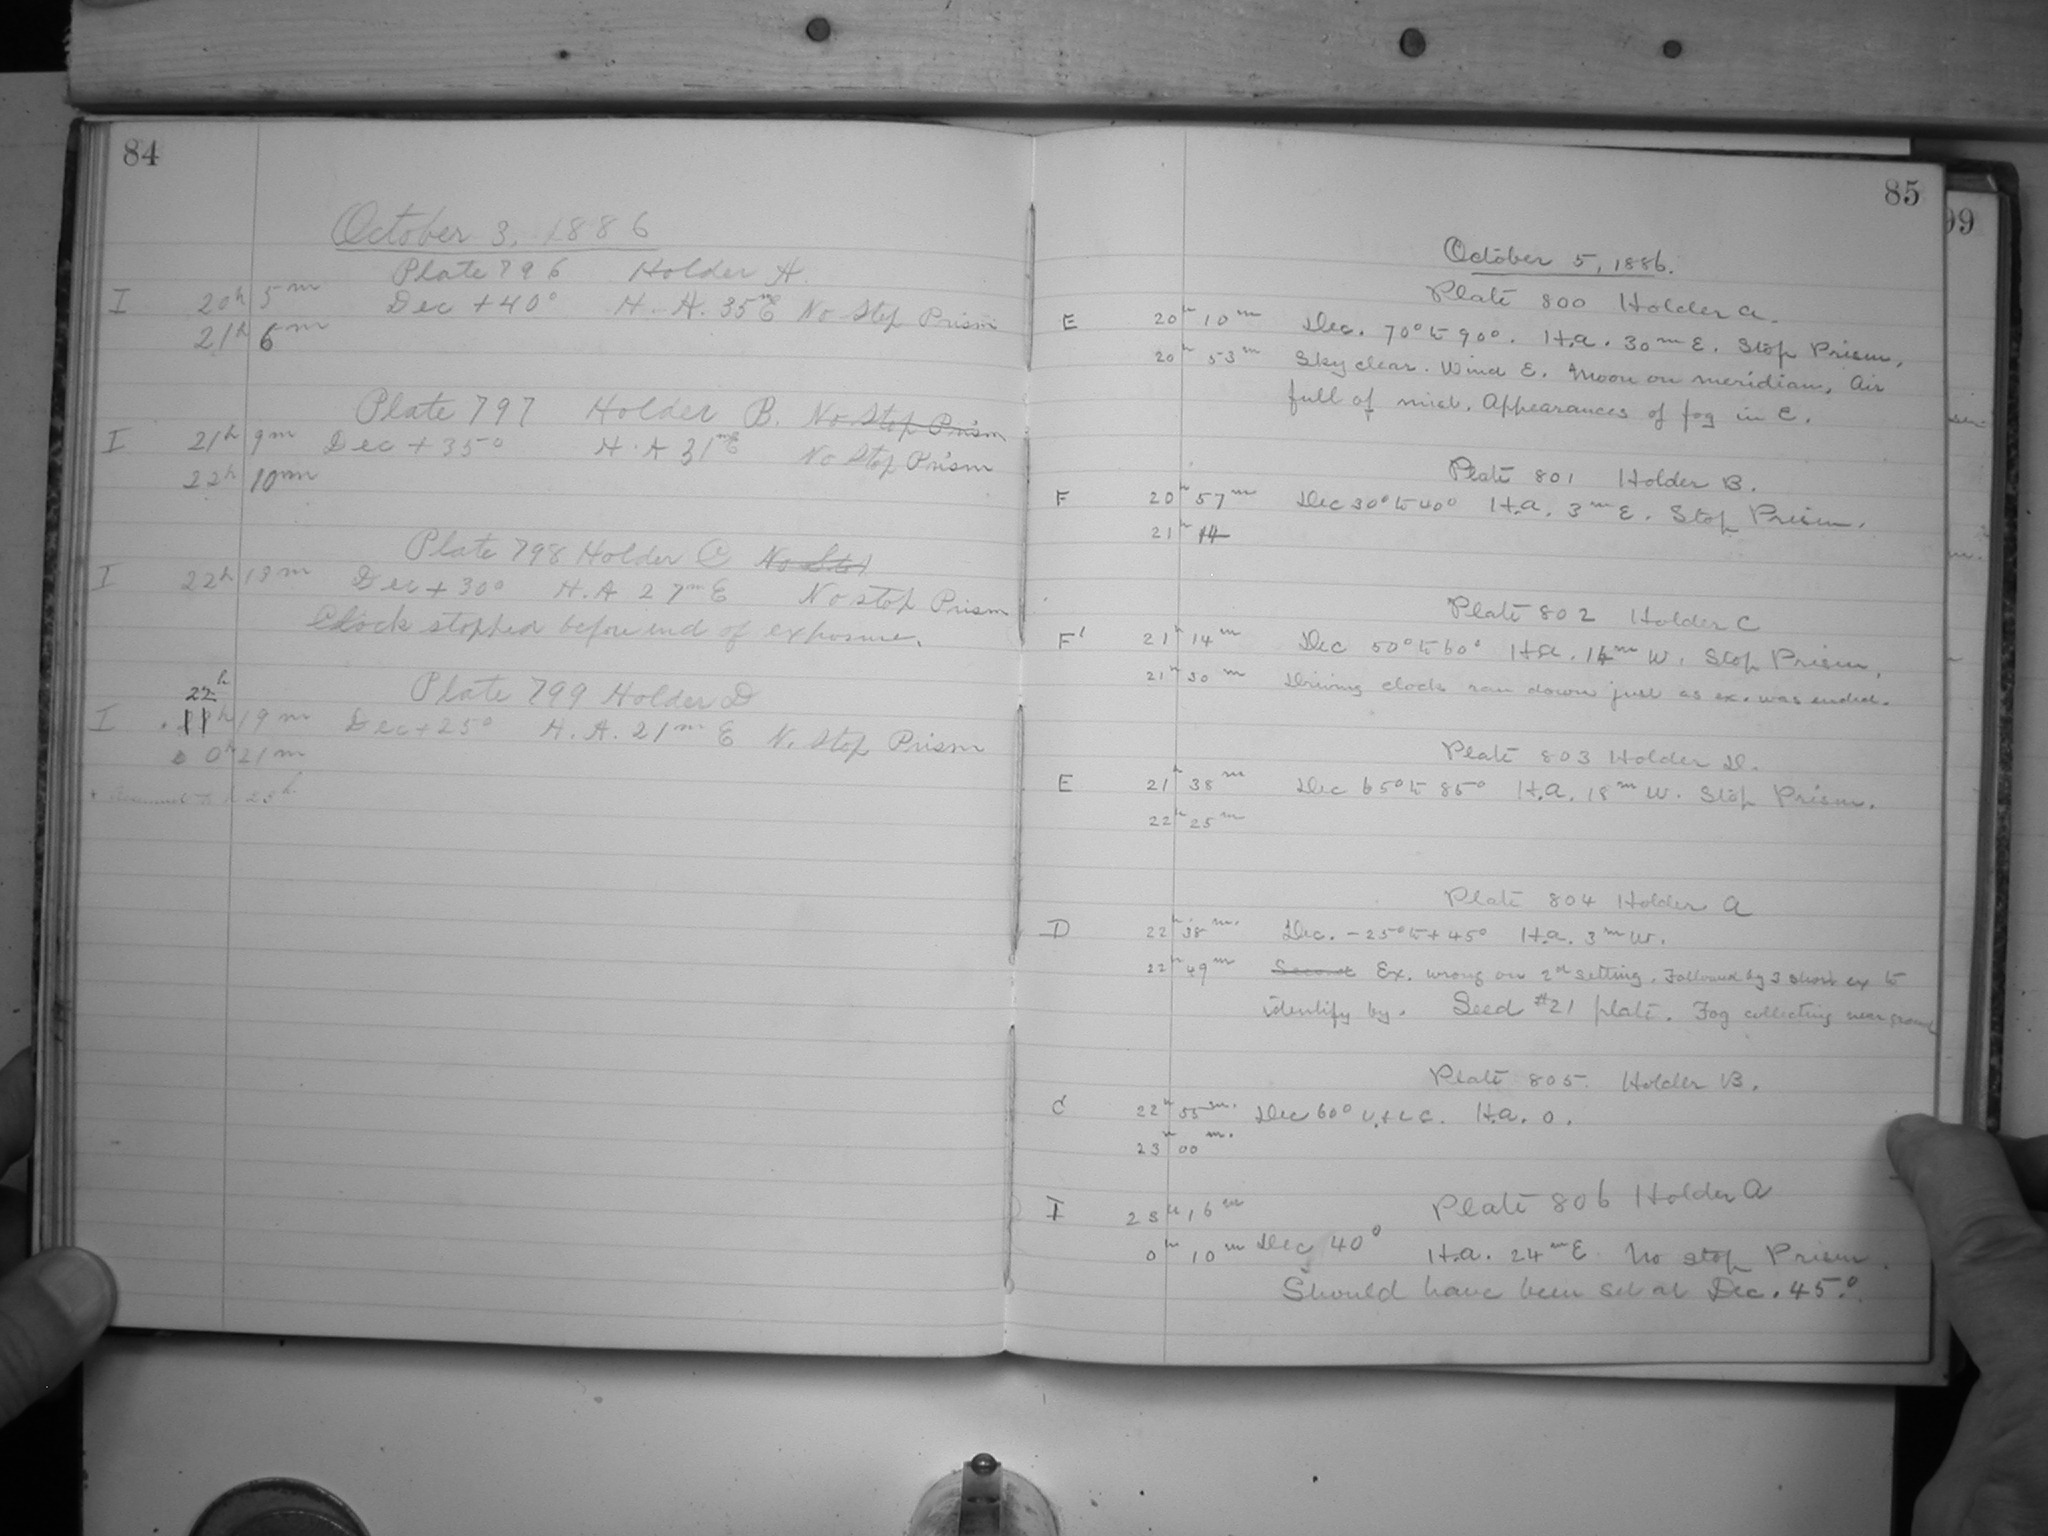 84
October 3, 1886
Plate 796 Holder A.
I 20h 5m Dec +40° H. A. 35mE No Stop Prism
21h 6m
Plate 797 Holder B. No Stop Prism
I 21h 9m Dec + 35° H. A 31mE No Stop Prism
22h 10m
Plate 798 Holder C No Stop
I 22h 13m Dec + 30° H. A 27mE No stop Prism
Clock stopped before end of exposure.
22h Plate 799 Holder D
I 19m Dec +25° H. A. 21m E N. Stop Prism
0h 21m
23h
85
99
October 5, 1886.
Plate 800 Holder A.
E 20h 10m Dec. 70° to 90°. H.A. 30m E. Stop Prism.
20h 53m Sky clear. Wind E. Moon on meridian, Air
full of mist. Appearances of fog in E.
Plate 801 Holder B.
F 20h 57m Dec 30° to 40° H.A. 3m E. Stop Prism.
21h 14
Plate 802 Holder C
F' 21h 14m Dec 50° to 60° H.A. 14m W. Stop Prism.
21h 30m Driving clock ran down just as ex. was ended.
Plate 803 Holder D.
E 21h 38m Dec 65° to 85° H.A. 18m W. Stop Prism.
22h 25m
Plate 804 Holder A
D 22h 38m. Dec. -25° to +45° H.A. 3m W.
22h 49m Second Ex. wrong on 2nd setting. Followed by 3 short ex to
identify by. Seed #21 plate. Fog collecting near ground
Plate 805. Holder B.
C 22h 55m. Dec 60° U. + L C. H.A. 0.
23h 00m.
I 23h 16m Plate 806 Holder A
0h 10m Dec 40° H.A. 24m E No stop Prism.
Should have been set at Dec. 45°.